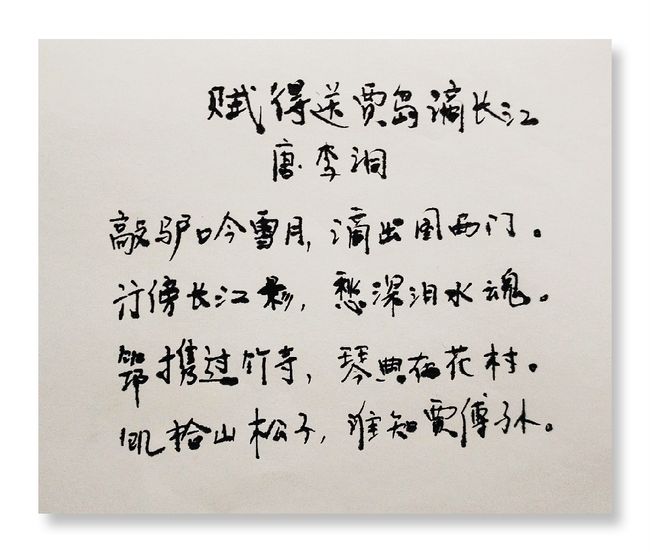 赋得送贾岛谪长江
唐.李洞
敲驴吟雪月,谪出国西门。
行傍长江影,愁深汨水魂。
筇携过竹寺,琴典在花村。
饥拾山松子,谁知贾傅孙。